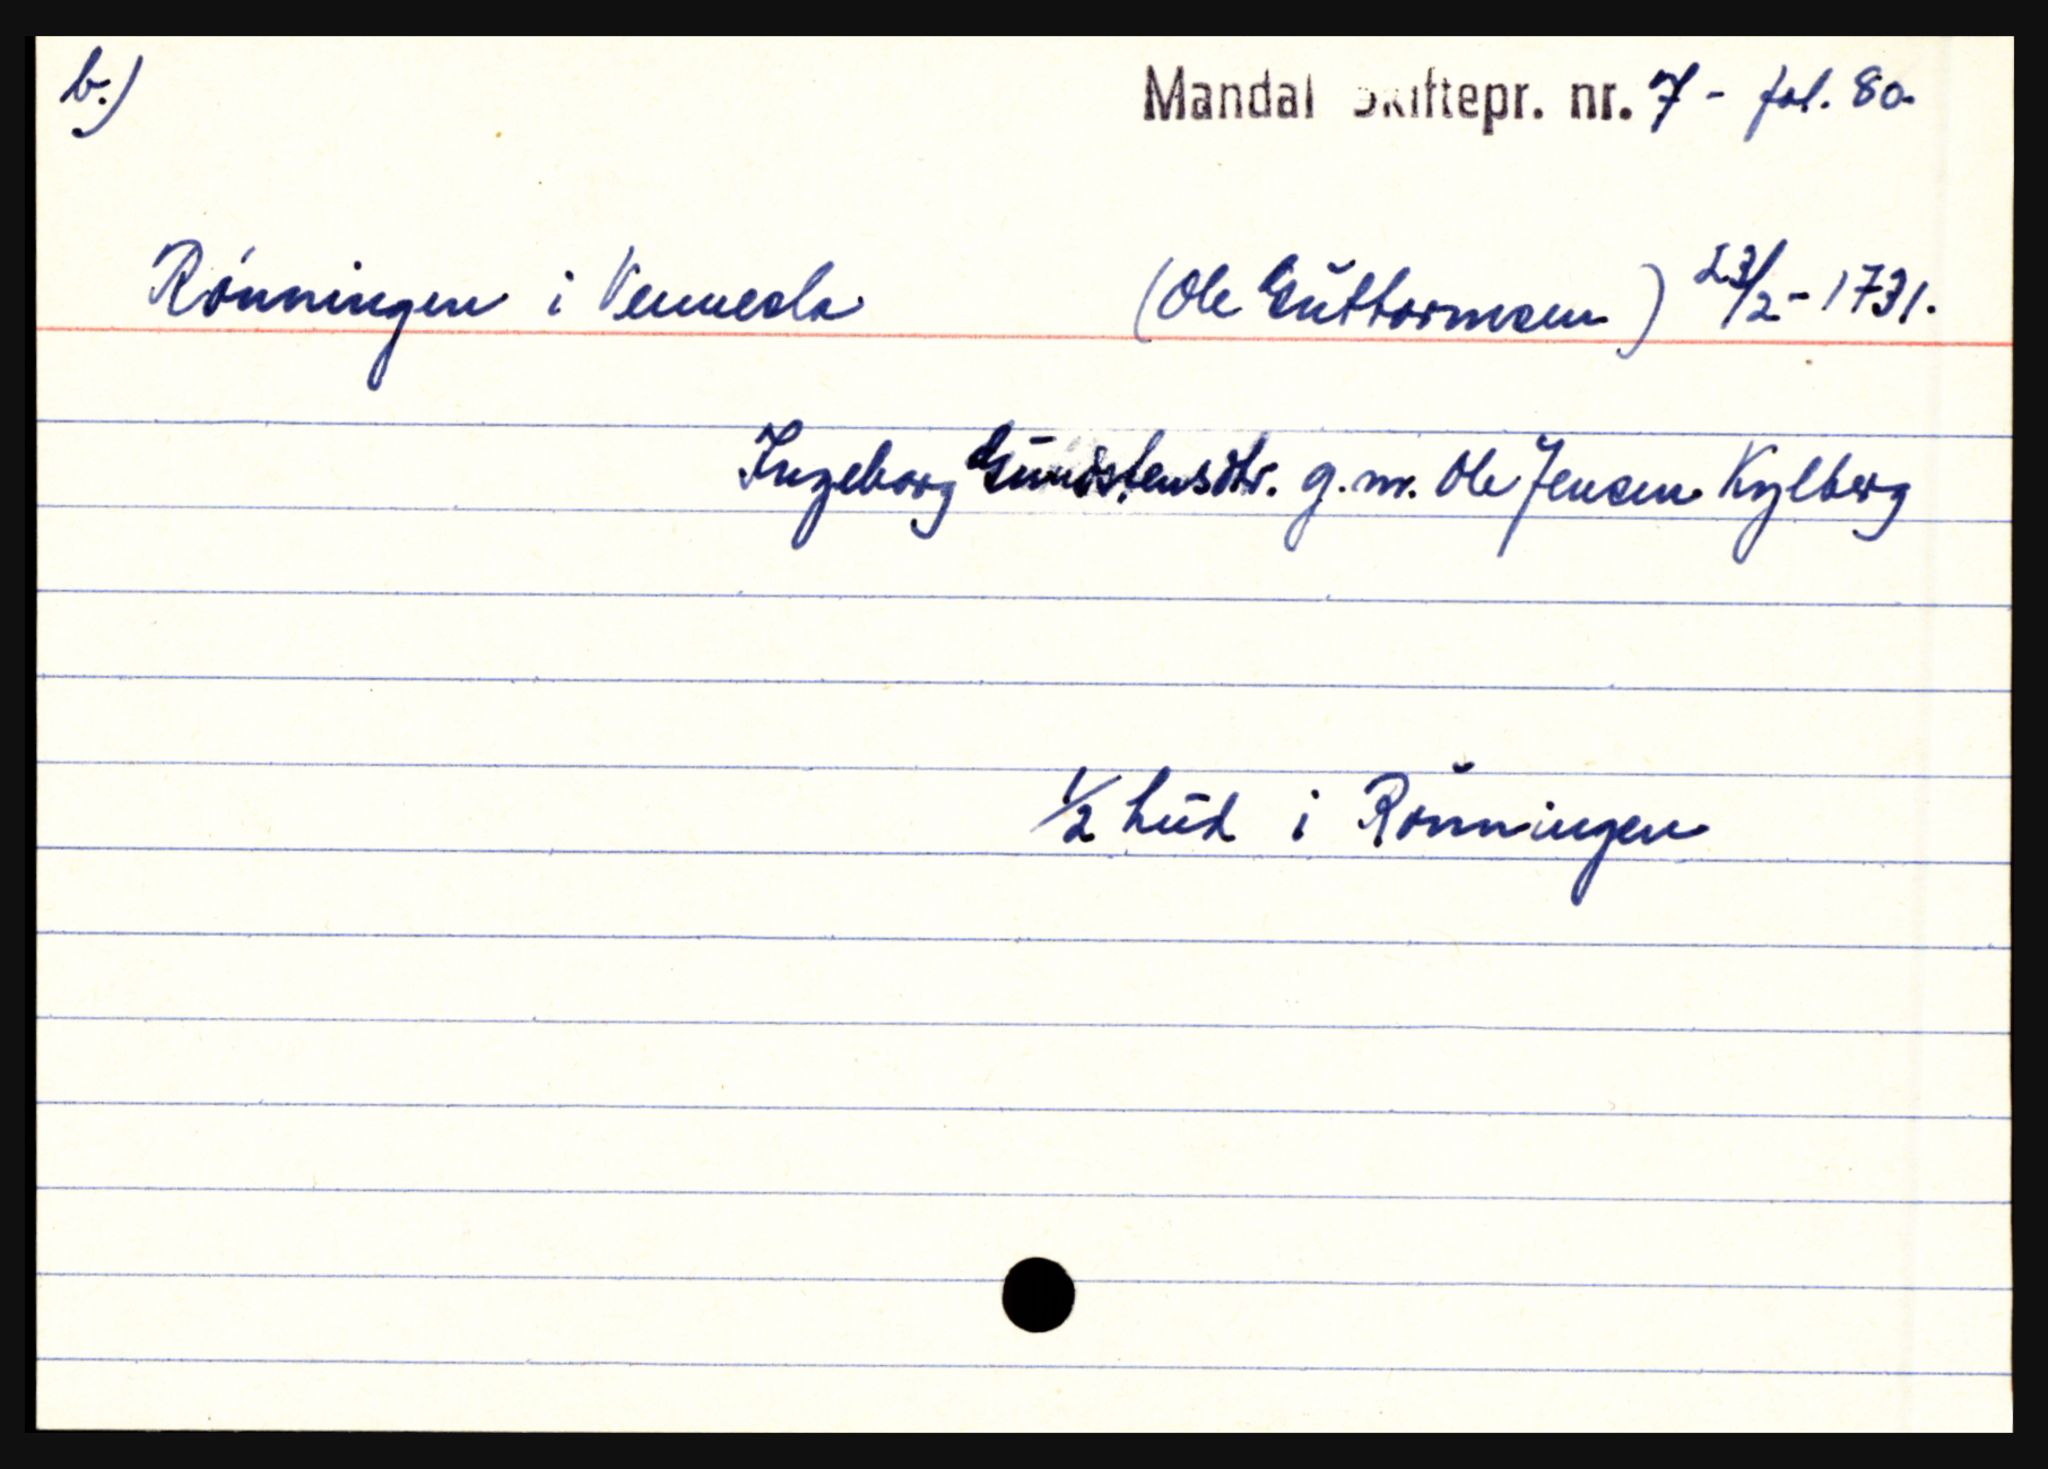 b.)
Mandal Skiftepr. nr. 7 - fol. 80.
Rønningen i Vennesla (Ole Guttormsen) 23/2 - 1731.
Ingeborg Gunstensdtr. g.m. Ole Jensen Kylberg
1/2 hud i Rønningen